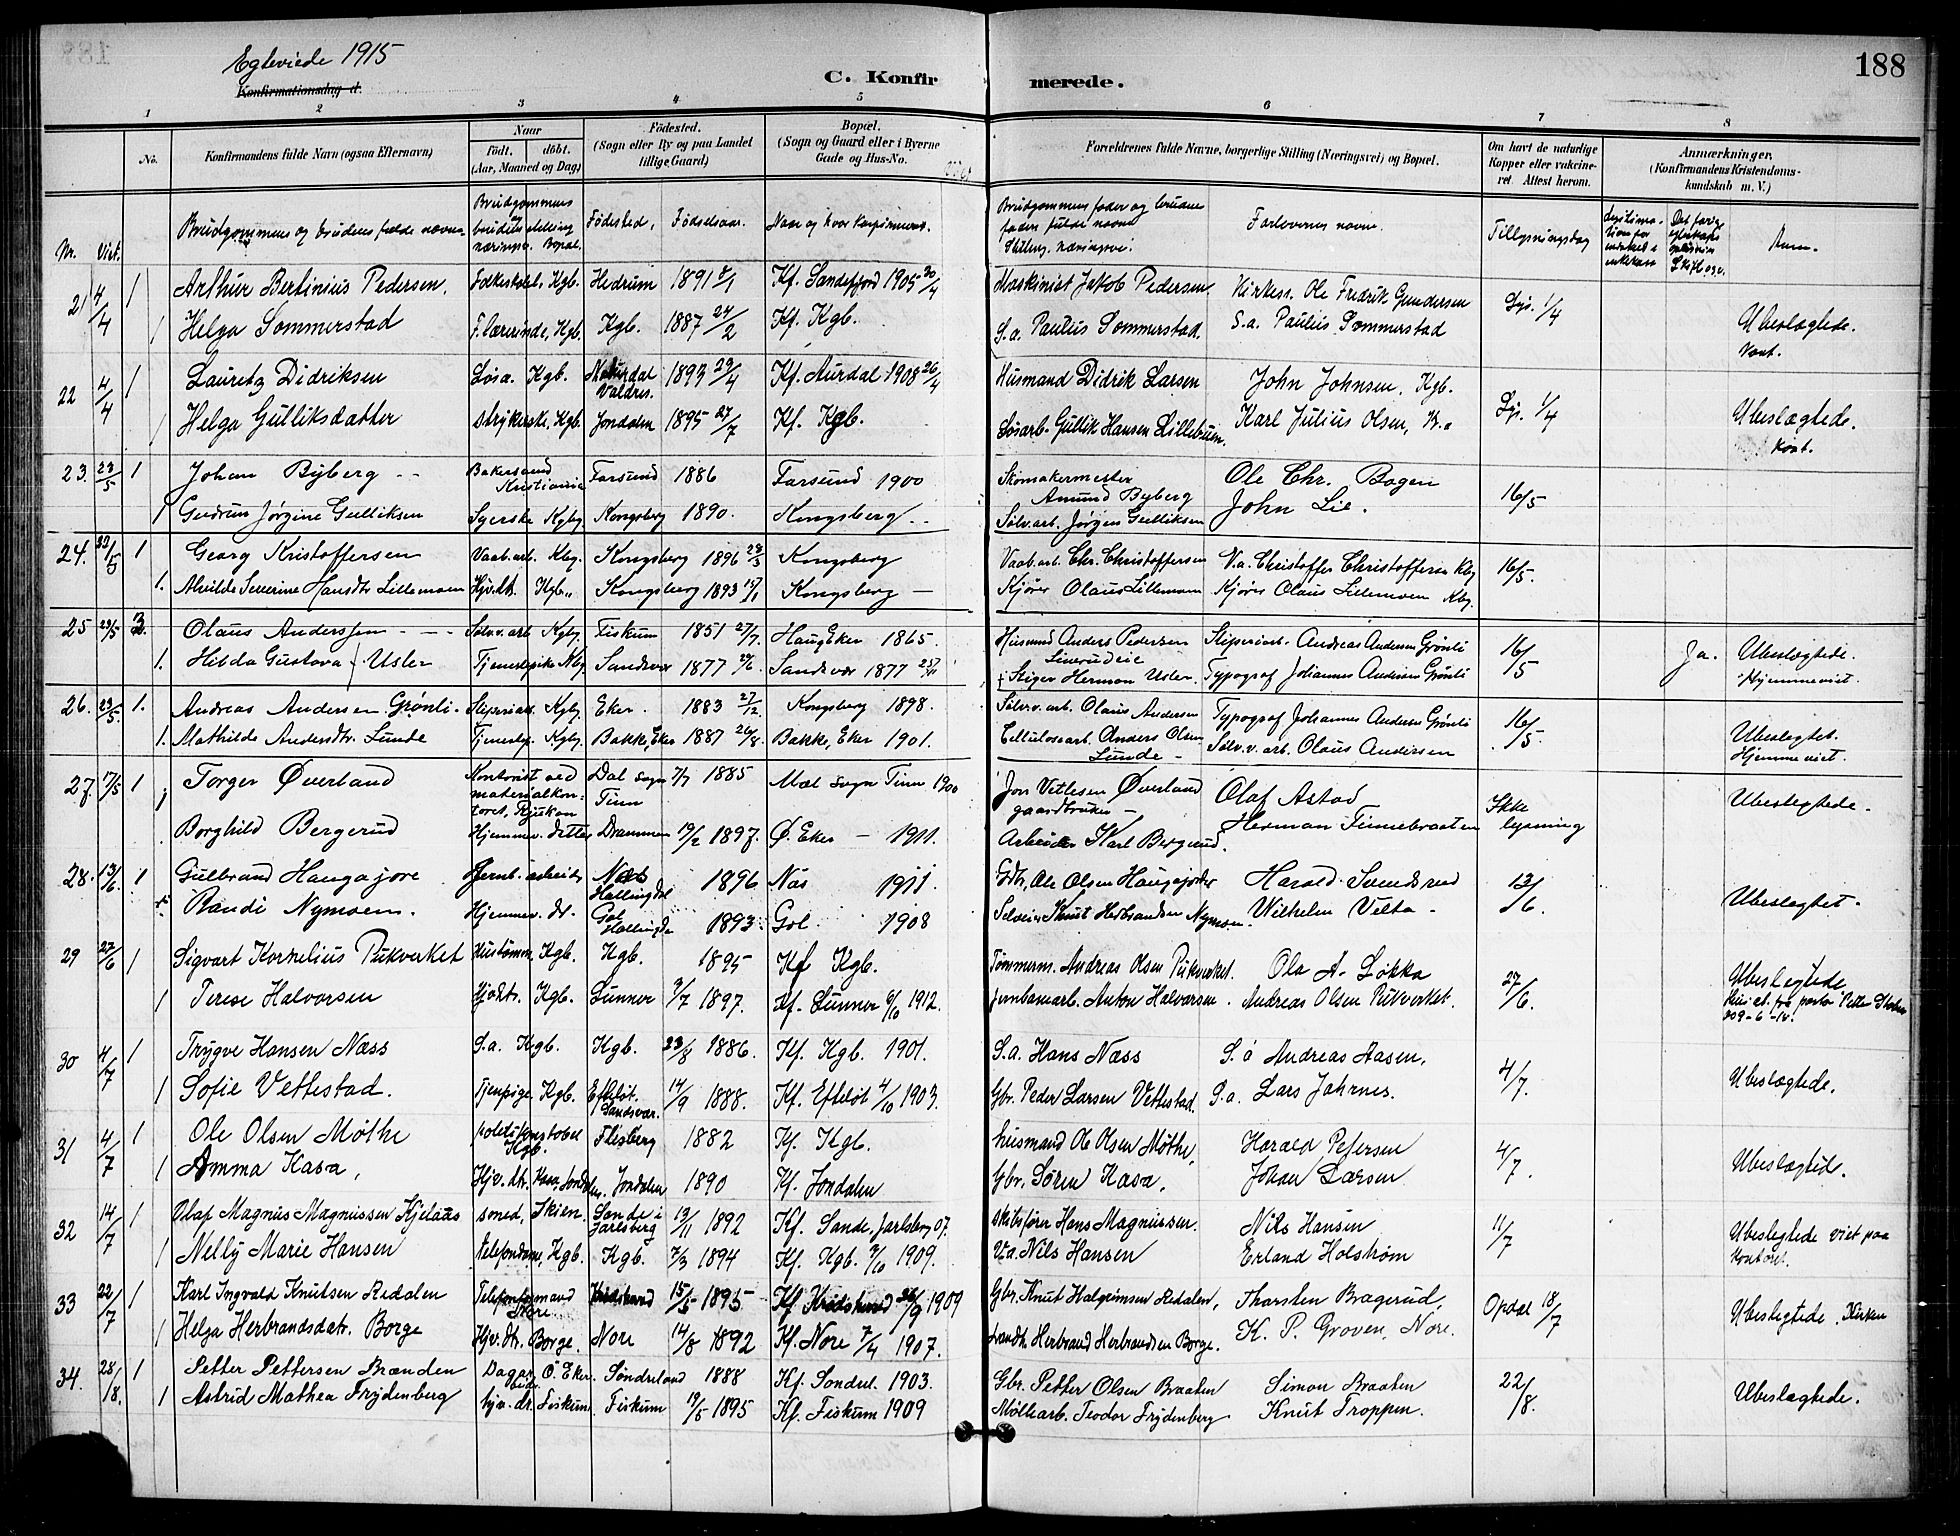 Egteviede 1915
Konfirmationsdag d.
C. Konfirmerede.
188
1 2 3 4 5 6 7 8
No.
Konfirmandens fulde Navn (ogsaa Efternavn)
Naar
født. døbt.
(Aar, Maaned og Dag)
Fødested.
(Sogn eller By og paa Landet tillige Gaard)
Bopæl.
(Sogn og Gaard eller i Byerne Gade og Hus-No.
Forældrenes fulde Navne, borgerlige Stilling (Næringsvei) og Bopæl.
Om havt de naturlige Kopper eller vaccineret. Attest herom.
Anmærkninger.
(Konfirmandens Kristendomskundskab m. V.)
Nr. Viet. Brudgommens og brudens fulde navne Brudgommens og brudens stilling næringsv. Bopæl. Fødested. Fødselsaar. Naar og hvor konfirmeret. Brudgommens fader og brudens faders fulde navne Stilling, næringsvei. Forlovernes navne. Tillysningsdag Anm.
21 4/4 1 Arthur Bertinius Pedersen. Kgb. Hedrum 1891 Kf. Sandefjord 1905 30/4 Maskinist Jakob Pedersen. Ole Fredrik Gundersen Lys. 1/4
1 Helga Sommerstad F. lærerinde, Kgb. Kgb. 1887 24/2 Kf. Kgb. S.a. Paulus Sommerstad. S.a. Paulus Sommerstad Ubeslægtede. Kont.
22 4/4 1 Lauretz Didriksen Løsa. Kgb. Valdres. 1893 29/4 Kf. Aurdal 1908 26/4 Husmand Didrik Larsen John Johnsen, Kgb. Lys. 1/4
1 Helga Gulliksdatter Strykerske, Kgb. Jondalen 1895 27/7 Kf. Kgb. Løsarb. Gullik Hansen Lillebuen. Karl Julius Olsen, Ubeslægtede. Kont.
23. 23/5 1 Johan Byberg Kristiania Farsund 1886 Farsund 1900 Skomakermester Amund Byberg Ole Chr. Bogen 16/5
1 Gudrun Jørgine Gulliksen Syerske Kgbg. Kongsberg 1890. Kongsberg Sølv.arb. Jørgen Gulliksen John Lie.
24. 23/5 1 Georg Kristoffersen Vaab.arb. Kbg. Kongsberg 1896 Kongsberg Vaab.arb. Chr. Christoffersen V.a. Christoffer Christoffersen Kbg 16/5.
1. Alvilde Severine Hansdtr Lillemoen Hjv.dtr. Kgb. Kongsberg 1893 15/1 Kongsberg Kjører Olaus Lillemoen Kjører Olaus Lillemoen Kbg.
25 23/5 2. Olaus Anderssen Sølvv.arb Kgbg. Fiskum 1851 27/7 Haug Eker 1865. Husmd Anders Pedersen Sliperiarb. Andreas Andersen Grønli 16/5 Ja. Ubeslægtede. Hjemmeviet.
1. Hilda Gustava Usler Tjenestpike Sandsvær 1877 Sandsvær 1877 Stiger Herman Usler. Typograf Johannes Andersen Grønli
26. 23/5. 1. Andreas Andersen Grønli. Sliperiarb. Kgbg. Eker. 1883 27/12 Kongsberg 1898. Sølvv.arb. Olaus Andersen Typograf Johannes Andersen Grønli 16/5
1. Mathilde Andersdtr. Lunde Tjenestep. Kgbg. Bakke, Eker 1887 26/8. Bakke, Eker 1901. Celluloseab. Anders Olsen Lunde Sølv.v.arb. Olaus Andersen Ubeslegtet. Hjemmeviet.
27. 17/5 1 Torger Øverland Kontorist ved materialkontoret, Rjukan Dal sogn Tinn 7/7 1885 Mæl sogn Tinn 1900 Jon Vetlesen Øverland gaardbruker Olaf Astad Ikke lysning Ubeslegtede.
Borghild Bergerud Hjemmev. datter Drammen 19/2 1897. Ø. Eker 1911. Arbeider Karl Bergerud. Herman Tinnebraaten
28. 13/6. 1 Gulbrand Haugasjore Jernb. arbeider Næs Hallingdal 1896 Nas 1911. Gdbr. Ole Olsen Harald Svendsrud 13/6. Ubeslegtet.
Randi Nymoen. Hjemmev. dt. Gol Hallingda 1893 Gol 1908 Selveier Knut Herbrandsen Nymoen. Wilhelm Velta
29 27/6 1 Sigvart Kornelius Pukverket Hustømmer Kgb. Kgb. 1895 Kf Kgb. Tømmerm. Andreas Olsen Pukverket. Ola A. Løkka 27/6.
1 Terese Halvorsen Hjv.dtr. Kgb. Lunner 9/7 1897. Kf. Lunner 6/10 1912. Jernbanearb. Anton Halvorsen. Andreas Olsen Pukverket. Ubeslegtede
30 4/7 1 Trygve Hansen Næss S.a. Kgb. Kgb. 23/8 1886. Kf. Kgb. 1901. S.a. Hans Næss Andreas Aasen. 4/7.
1 Sofie Vettestad. Tjenpige Kgb. Efteløt. Sandsvær. 14/9 1888. Kf. Efteløt 4/10 1903. Gbr. Peder Larsen Vettestad. S.a. Lars Jahrnes. Ubeslegtede.
31 4/7 1 Ole Olsen Møthe politikonstabel Kgb. Flesberg 1882 Kf. Kgb. husmand Ole Olsen Møthe. Harald Petersen 4/7.
1 Amma Kasa, Hjv.dtr. Kasa, Jondalen. Jondalen 1890 Kf. Jondalen Gbr. Søren Kasa, Johan Larsen Ubeslegted.
32 14/7 1 Olaf Magnus Magnussen Kjelaas smed, Skien. Sande i Jarlsberg 13/11 1892 Kf. Sande, Jarlsberg 07. skibsfører Hans Magnussen. Nils Hansen 11/7
1 Nelly Marie Hansen telefondame, Kgb. Kgb. 7/3 1894 Kf. Kgb. 3/10 1909. V.a. Nils Hansen Erland Holstrøm Ubeslegtede viet paa kontoret.
33 22/7 1 Karl Ingvald Knutsen Redalen Telefonformand Krødsherred 15/5 1895 Kf. Krødsherred 26/9 1909 Gbr. Knut Halgrimsen Redalen, Thorsten Bragerud, Opdal 18/7
1 Helga Herbrandsdatr. Borge Hjv.dtr. Borge. Nore 14/8 1892 Kf. Nore 7/4 1907. Landh. Herbrand Herbrandsen Borge. K. P. Groven, Nore. Ubeslegtede. Kirken
34. 28/8. 1 Petter Pettersen Brænden Dagarbeider Ö. Eker. Søndreland 1888 Kf. Søndrel. 1903. Gbr. Petter Olsen Braaten Simon Braaten 22/8.
1 Astrid Mathea Frydenberg hjv. dr. Fiskum. Fiskum 19/5 1895 Kf. Fiskum 1909 Møllearb. Teodor Frydenberg Knut Troppen. Ubeslegtede.